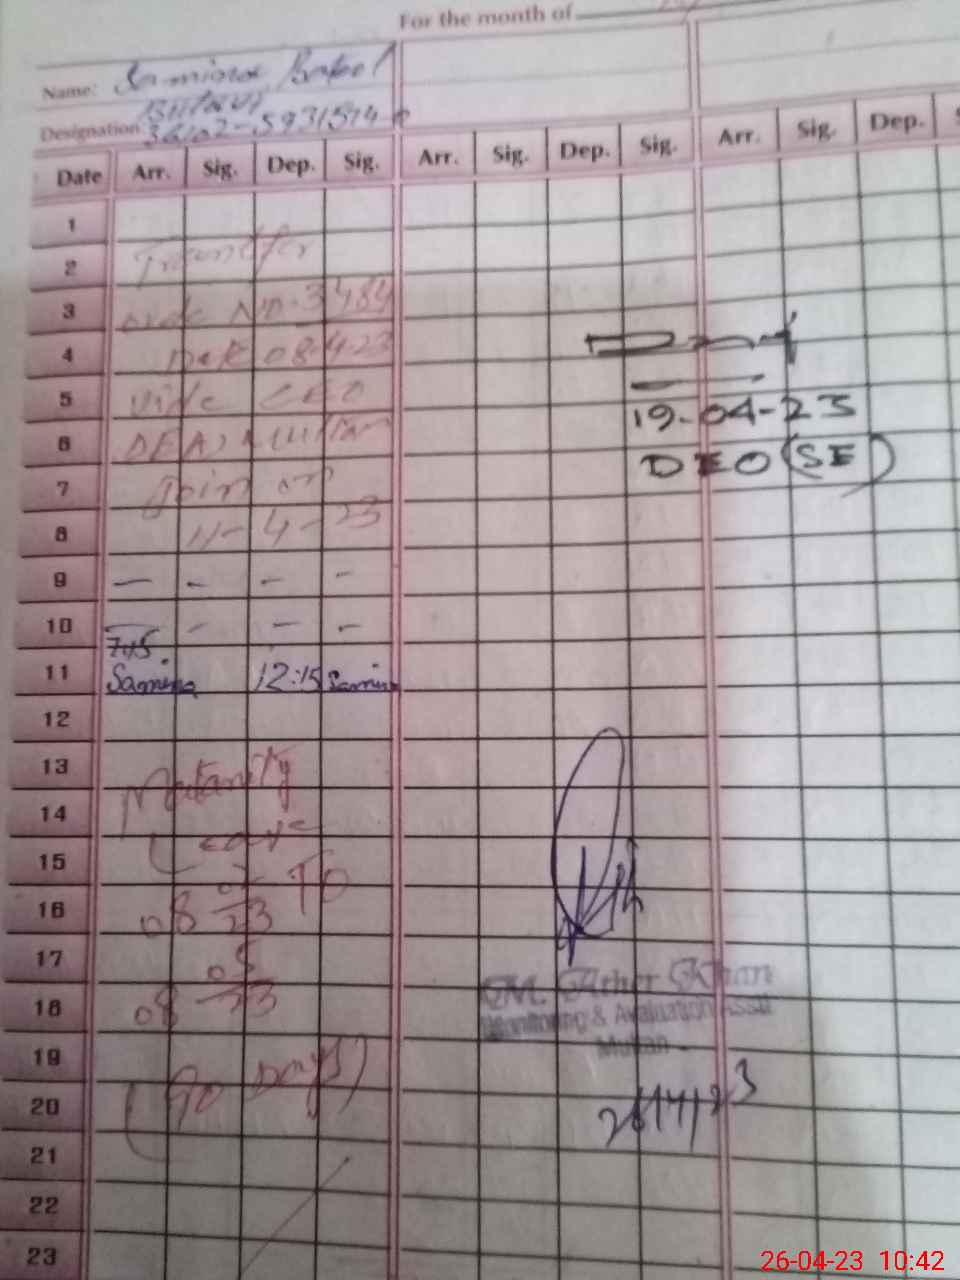 For the month of
Name: Samina Batool
Designation 36102-5931514-
Date Arr. Sig. Dep. Sig. Arr. Sig. Dep. Sig. Arr. Sig. Dep. S
1
2 Transfer
3 No. 3484
4 08-4-23
5 vide CEO
6 DEA) Multan
7 Join on
8 11-4-23
9 — - - -
10 — - - -
7:45
11 Samina 12:15 Samina
12
13 Matanity
14 Leave
15
16 08 02/23 To
17
18 08 05/23
19
20 (90 Days)
21
22
23
19-04-23
DEO (SE)
M. Ather Khan
Monitoring & Avaluation Asstt
Multan
26/4/23
26-04-23 10:42